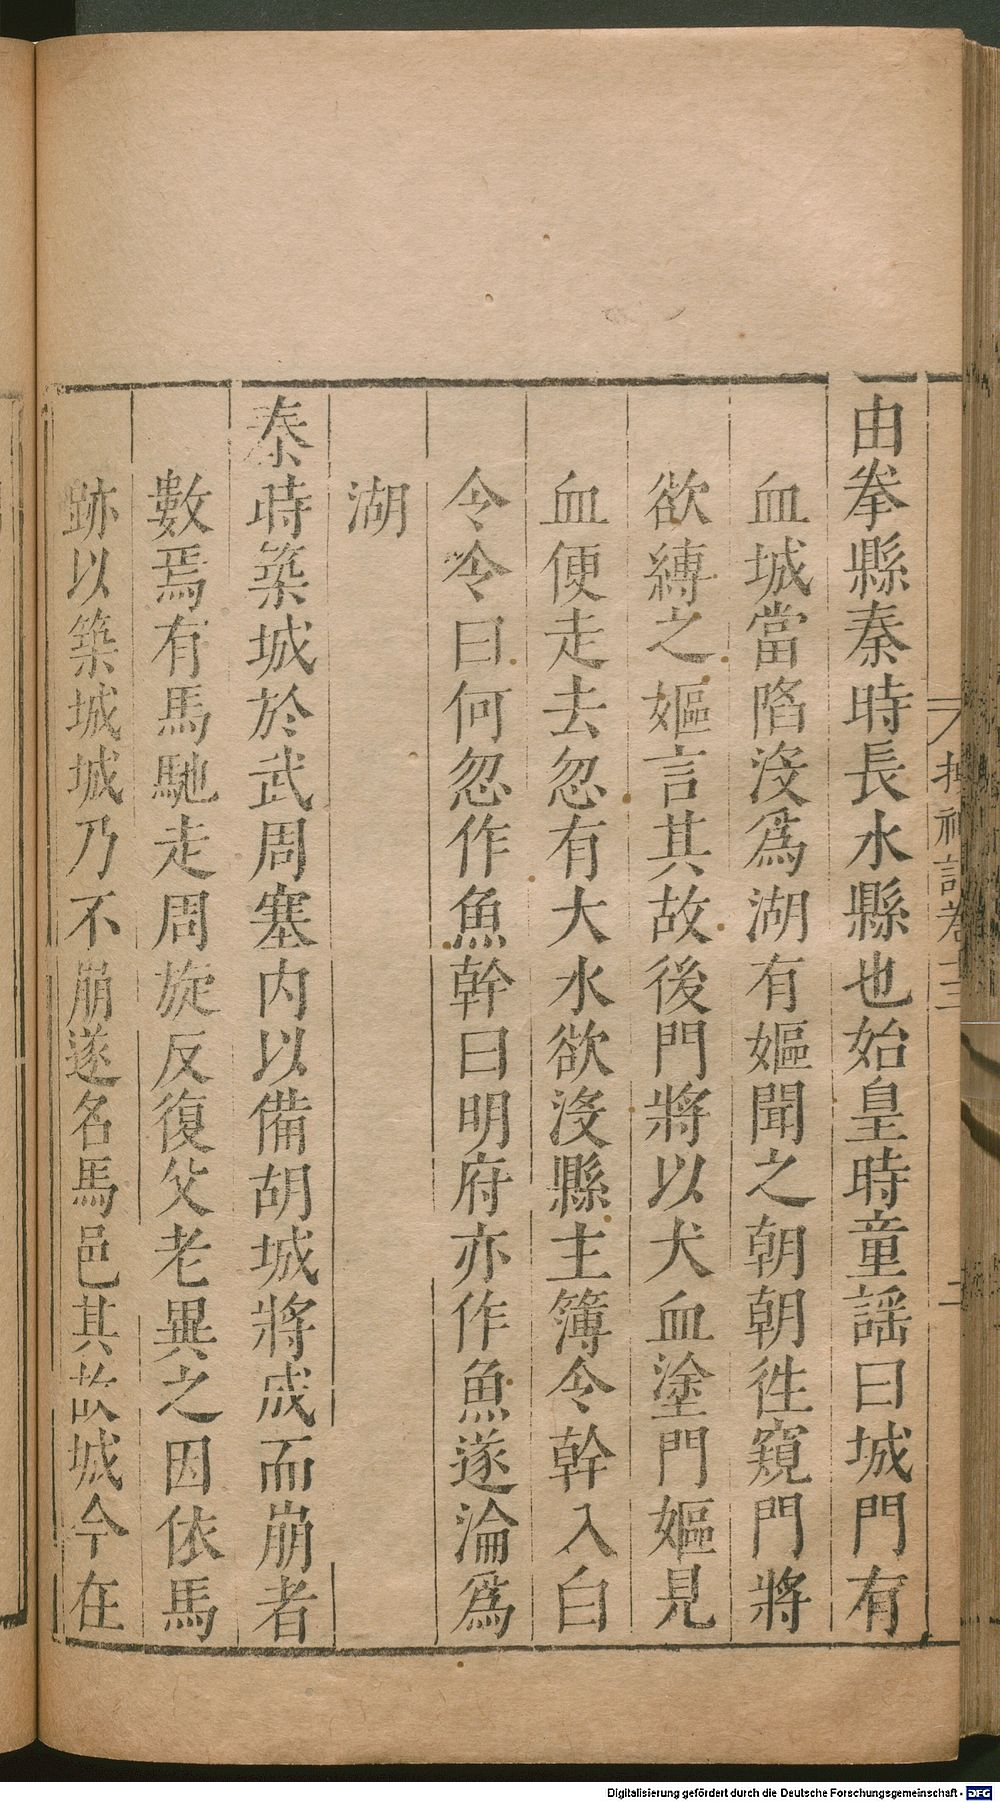 由拳縣秦時長水縣也始皇時童謡曰城門有
血城當陷没爲湖有嫗聞之朝朝徃窺門將
欲縛之嫗言其故後門將以犬血塗門嫗見
血便走去忽有大水欲没縣主簿令幹入白
令令曰何忽作魚幹曰明府亦作魚遂淪爲
湖
秦時築城於武周塞内以備胡城將成而崩者
數焉有馬馳走周旋反復父老異之因依馬
跡以築城城乃不崩遂名馬邑其故城今在
搜神記卷
Digitalisierung gefördert durch die Deutsche Forschungsgemeinschaft - DFG